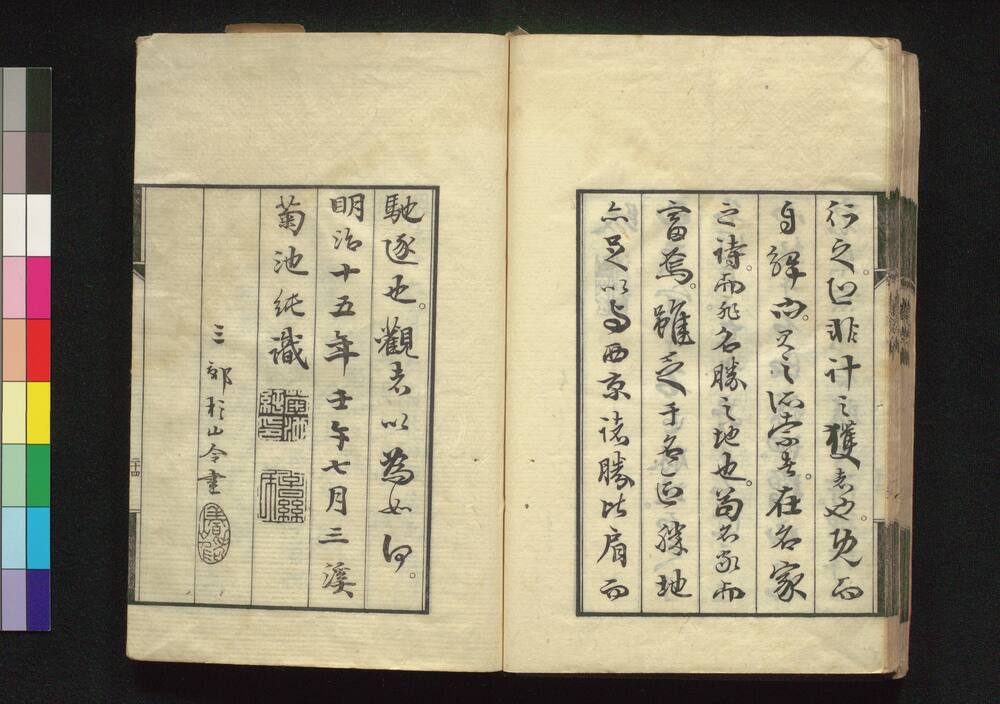 行之恐非計之獲者也。既而
自解曰。人之所崇者。在名家
之詩。而非名勝之地也。苟名家而
富焉。雖乏于名區勝地
亦足以与西京諸勝比肩而
馳逐也。觀者以為如何。
明治十五年壬午七月三溪
菊池純識
三郊杉山令書
二十四